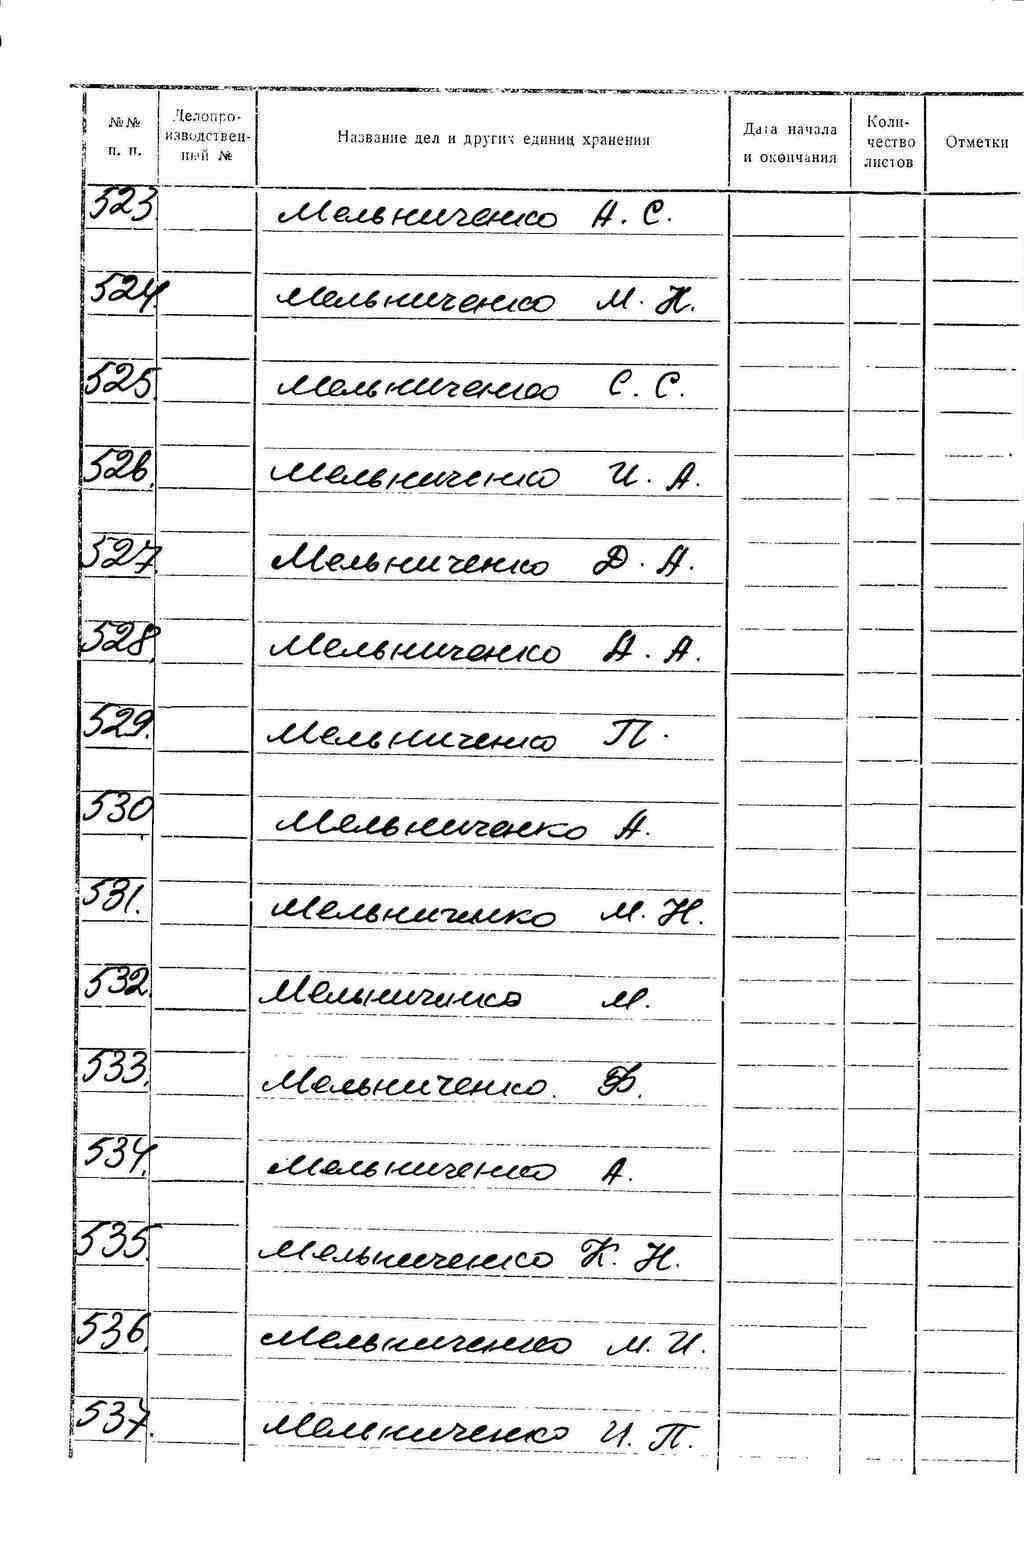 №№ п. п. Делопро-изводствен-ный № Название дел и других единиц хранения Дата начала и окончания Коли-чество листов Отметки
523. Мельниченко А. С.
524. Мельниченко М. Н.
525. Мельниченко С. С.
526. Мельниченко И. А.
527. Мельниченко Д. А.
528. Мельниченко А. А.
529. Мельниченко П.
530. Мельниченко А.
531. Мельниченко М. Н.
532. Мельниченко М.
533. Мельниченко Ф.
534. Мельниченко А.
535. Мельниченко К. Н.
536. Мельниченко М. И.
537. Мельниченко И. П.